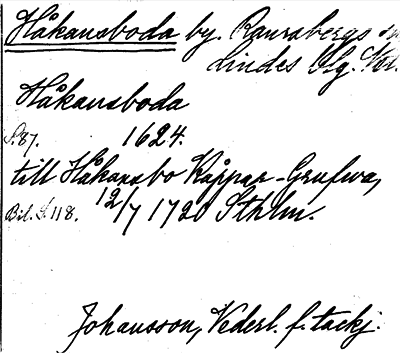 Håkansboda by. Ramsbergs sn
Lindes blg. Vm.
Håkansboda
S. 87. 1624.
till Håkansbo Kåppar-Grufwa,
Bil. S. 118. 12/7 1720 Sthlm.
Johansson, Vederl. f. tackj.